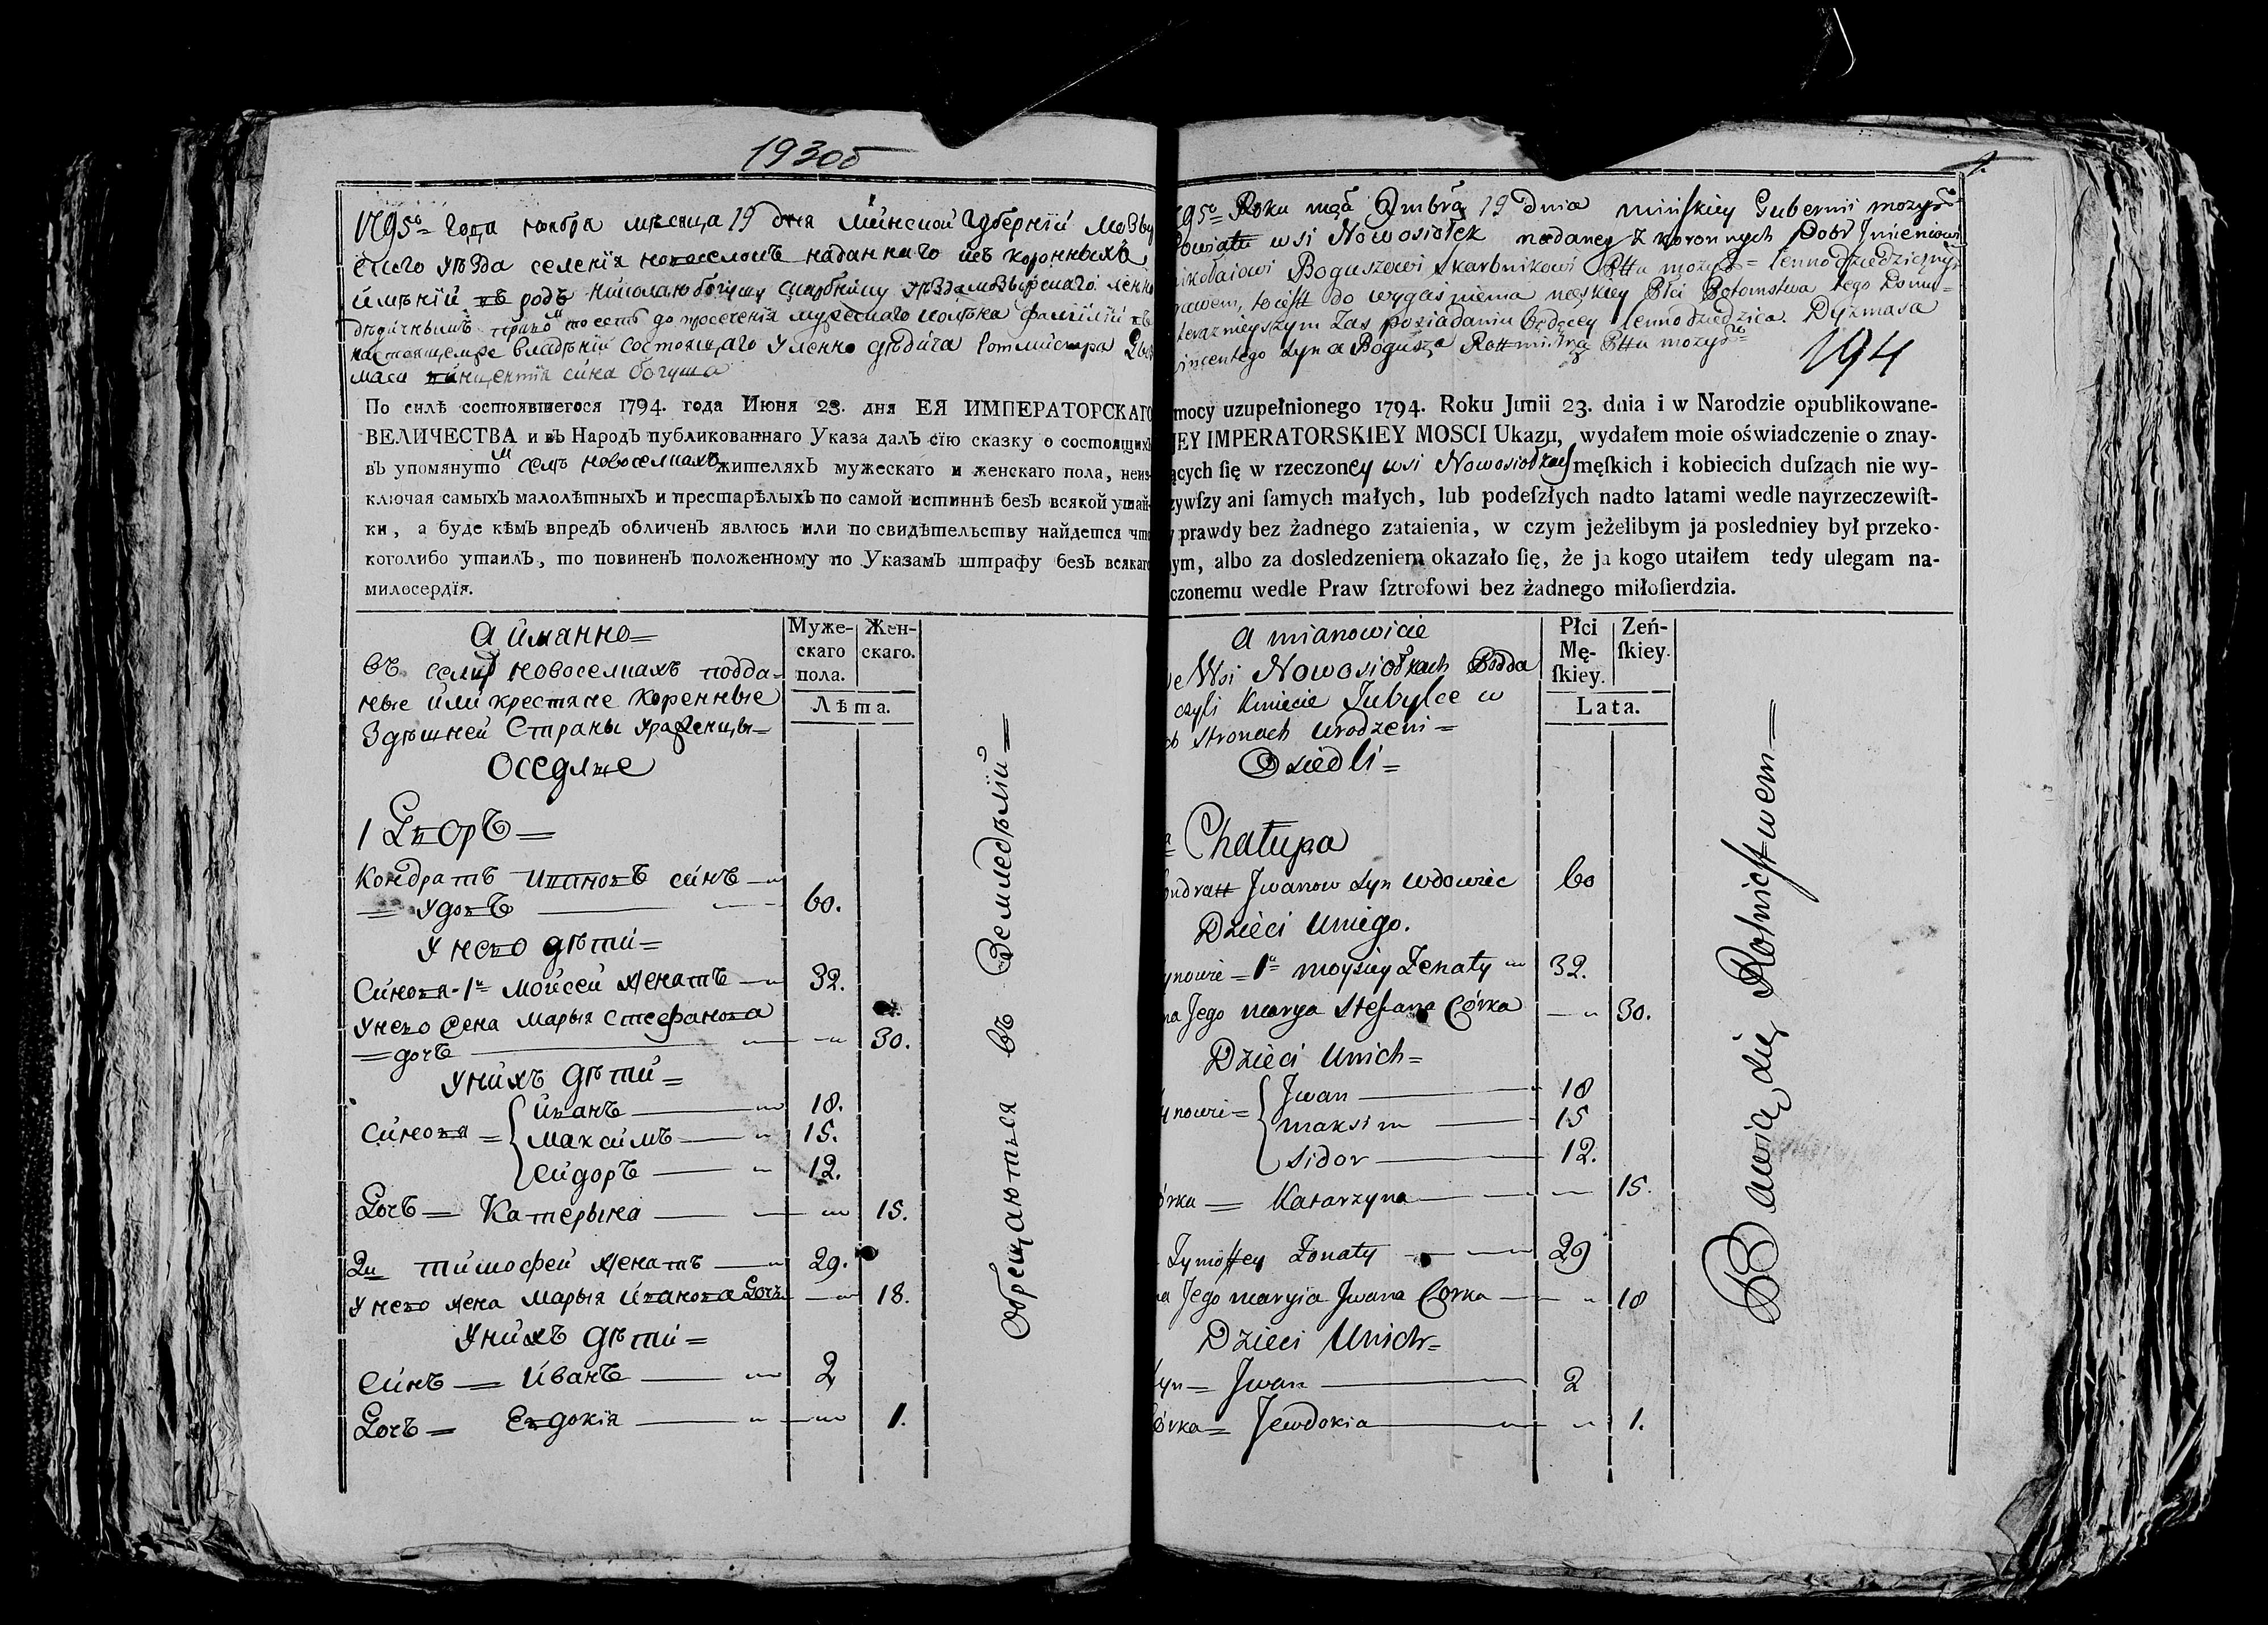 193об
1795го года ноября месяца 19 дня Минской Губернии Мозыр
ского уезда селения новоселокъ наданнаго изъ коронныхъ
имений въ родъ Николаю богушу скарбнику уезда мозырскаго ленно
дедичнымъ правомъ то есть до пресечения мужескаго колена фамилии въ
настоящемже владении состоящаго у ленно дедича Ротмистра Диз
маса винцентия сина богуша
По силѣ состоявшегося 1794. года Июня 23. дня ЕЯ ИМПЕРАТОРСКАГО
ВЕЛИЧЕСТВА и въ Народъ публикованнаго Указа далъ сїю сказку о состоящихъ
въ упомянутомъ селѣ новоселкахъ жителяхъ мужескаго и женскаго пола, неиз-
ключая самыхъ малолѣтныхъ и престарѣлыхъ по самой истиннѣ безъ всякой утай-
ки, а буде кѣмъ впредъ обличенъ явлюсь или по свидѣтельству найдется что
коголибо утаилъ, то повиненъ положенному по Указамъ штрафу безъ всякаго
милосердїя.
А иманно =
въ селе новоселкахъ подда-
ные или крестяне коренные
Здѣшней Страны ураженцы =
Оседлые
Муже-
скаго
пола.
Жен-
скаго.
Лѣта.
1 Дворъ =
Кондратъ Ивановъ синъ
= удовъ 60.
У него дѣти =
Синовя - 1й Мойсей женатъ 32.
У него жена Марыя Стефанова
= дочь 30.
У нихъ дѣти =
Иванъ 18.
Синовя = Максимъ 15.
Сидоръ 12.
Дочъ = Катерына 15.
2й Тимофей женатъ 29.
У него жена Марыя Иванова Дочъ 18.
У нихъ дѣти =
Синъ = Иванъ 2
Дочъ = Евдокія 1.
Обрещаються въ Земледѣлїи =
1
795o Roku mca 9mbra 19 dnia Minskiey Gubernii mozyr
Powiatu wsi Nowosiołek nadaney z koronnych Dobr Jmieniowi
ikołaiowi Boguszowi Skarbnikowi Pttu mozyr = lenno dziedzicznym
rawem, to iest do wygaśnienia męskiey Płci Potomstwa tego Domu =
teraznieyszym zas posiadaniu będącey lenno dziedzica. Dyzmasa
incentego syna Bogusza Rottmistrza Pttu mozyr
194
mocy uzupełnionego 1794. Roku Junii 23. dnia i w Narodzie opublikowane-
IEY IMPERATORSKIEY MOSCI Ukazu, wydałem moie oświadczenie o znay-
ących się w rzeczoney wsi Nowosiołkach męskich i kobiecich duszach nie wy-
zywszy ani samych małych, lub podeszłych nadto latami wedle nayrzeczewist-
y prawdy bez żadnego zataienia, w czym jeżelibym ja posledniey był przeko-
ym, albo za dosledzeniem okazało się, że ja kogo utaiłem tedy ulegam na-
czonemu wedle Praw sztrofowi bez żadnego miłosierdzia.
a mianowicie
we Wsi Nowosiołkach Podda
czyli Kmiecie Tubylce w
ch stronach urodzeni =
Osiedli =
Płci
Mę-
skiey.
Zeń-
skiey.
Lata.
a Chałupa
ondratt Jwanow syn wdowiec 60
Dzieci Uniego.
ynowie = 1n Moysiey Żenaty 32.
na Jego marya Stefana Córka 30.
Dzieci Unich =
Jwan 18
ynowie = Maksim 15
Sidor 12.
órka = Katarzyna 15.
Tymoffey Żonaty 29
na Jego maryia Jwana Corka 18
Dzieci Unich =
yn = Jwan 2
órka = Jewdokia 1.
Bawią się Rolnictwem =